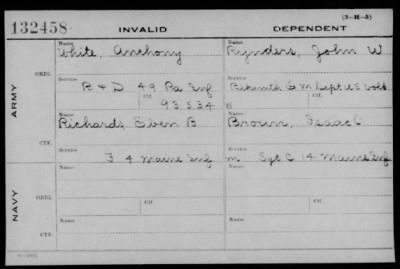 132458 INVALID DEPENDENT
(3-H-3)
Name Name
White, Anthony Rynders, John W
ORIG. Service Service
B & D 49 Pa Inf Q M Dept U S Vols
Ctf.
93534 W
ARMY
Name Name
Richards Eben B Brown, Isaac C
CTF. Service Service
F 4 Maine Inf m Sgt C 14 Maine Inf
Name Name
NAVY
ORIG. Service Service
Ctf. Ctf.
Name Name
CTF. Service Service